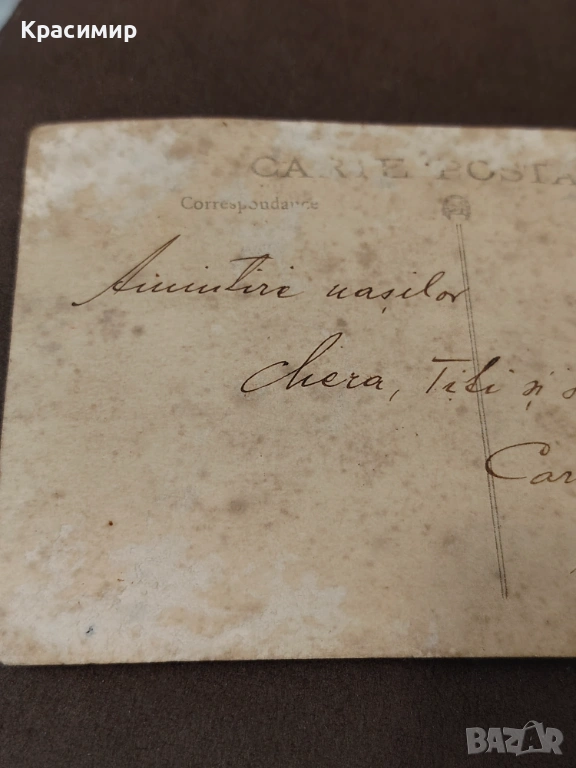 Красимир
CARTE POSTA
Correspondance
Amintire nașilor
Chera, Titi și s
Car
BAZAR